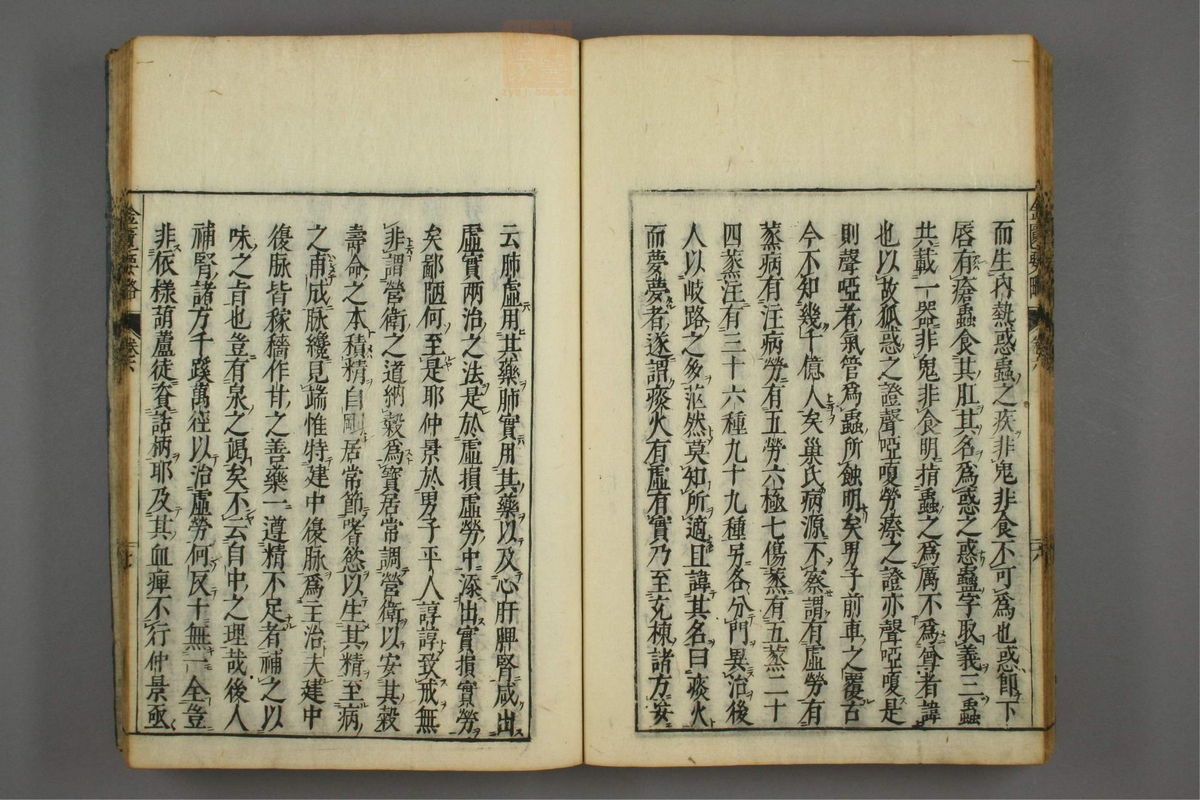 而生内熱惑蟲之疾非鬼非食不可爲也惑卽下
唇有瘡蟲食其肛其名爲惑之惑蠱字取義三蟲
共載一器非鬼非食明指蟲之爲厲不爲尊者諱
也以故狐惑之證聲啞嗄勞瘵之證亦聲啞嗄是
則聲啞者氣管爲蟲所蝕明矣男子前車之覆古
今不知幾千億人矣巢氏病源不察謂有虛勞有
蒸病有注病勞有五勞六極七傷蒸有五蒸二十
四蒸注有三十六種九十九種另各分門異治後
人以岐路之多茫然莫知所適且諱其名曰痰火
而夢夢者遂謂痰火有虛有實乃至充棟諸方妄
云肺虛用某藥肺實用某藥以及心肝脾腎咸出
虛實兩治之法是於虛損虛勞中添出實損實勞
矣鄙陋何至是耶仲景於男子平人諄諄致戒無
非謂營衛之道納穀爲寳居常調營衛以安其穀
壽命之本積精自剛居常節嗜慾以生其精至病
之甫成脉纔見端惟特建中復脉爲主治夫建中
復脉皆稼穡作甘之善藥一遵精不足者補之以
味之旨也豈有泉之竭矣不云自中之理哉後人
補腎諸方千蹊萬徑以治虛勞何反十無一全豈
非依樣葫蘆徒資話柄耶及其血痺不行仲景亟
金匱要略
卷六